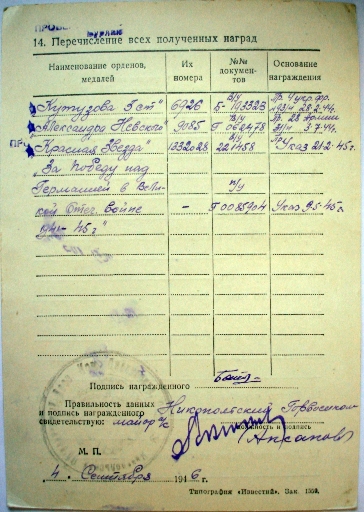 14. Перечисление всех полученных наград
Наименование орденов, медалей
Их номера
№№ документов
Основание награждения
„Кутузова 3 ст" 6926 в/у Б-193323 Пр.
№93/н 28.2.44.
„Александра Невского" 9085 в/у Г 062478 Пр. 28 Армии
3.7.44.
„Красная Звезда" 1332028 в/у 221458 Указ 21.2.45г.
„За победу над
Германией в Вели- п/у
кой Отеч. Войне - Г 0085904 Указ 9.5-45г.
1941-45г"
Подпись награжденного
Правильность данных
и подпись награжденного
свидетельствую: майор а/с
Никопольский Горвоенком
Должность и подпись
Аксаков
М. П.
4. Сентября 1946 г.
Типография «Известий». Зак. 1559.